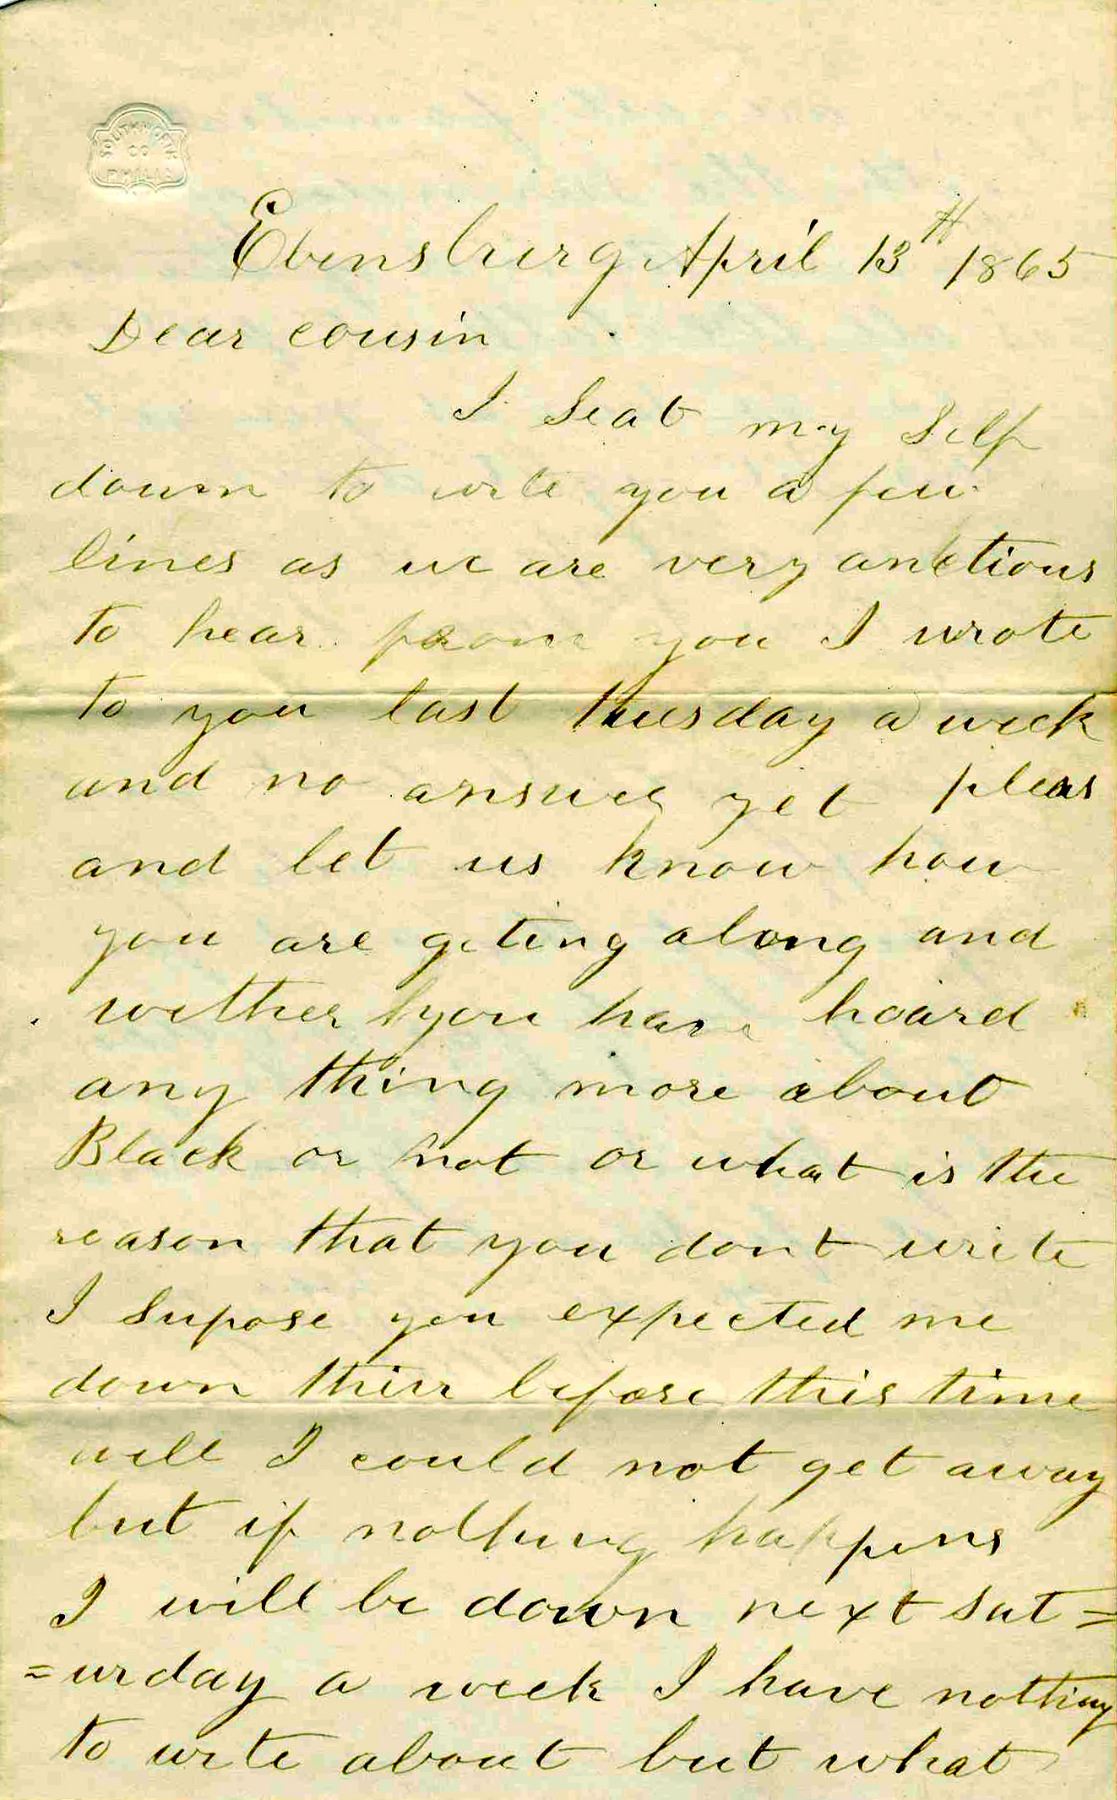 SOUTHWORTH
CO
PHILA
Ebensburg April 13th 1865
Dear cousin
I Seat my Self
down to write you a few
lines as we are very anctious
to hear from you I wrote
to you last tuesday a week
and no answer yet pleas
and let us know how
you are geting along and
wether you have heard
any thing more about
Black or not or what is the
reason that you dont write
I Supose you expected me
down thier before this time
well I could not get away
but if nothing happens
I will be down next Sat=
=urday a week I have nothing
to write about but what